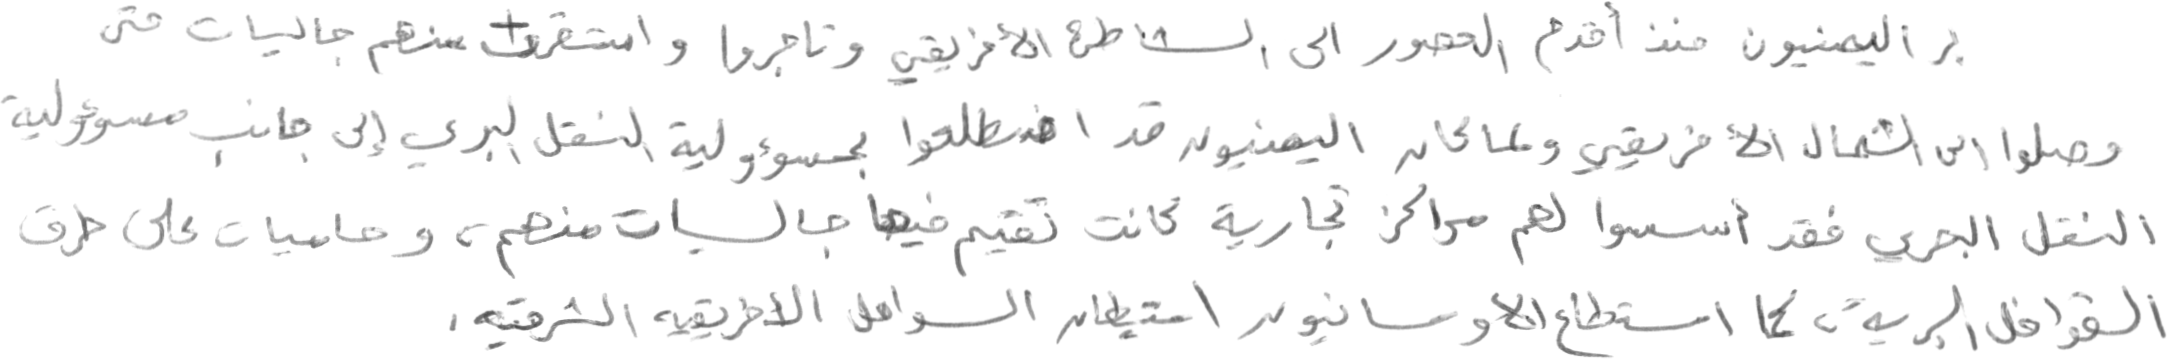 بر اليمنيون منذ أقدم العصور الى الشاطئ الأفريقي وتاجروا واستقرت منهم جاليات حتى
وصلوا الى الشمال الأفريقي ولما كان اليمنيون قد اضطلعوا بمسوؤولية النقل البري إلى جانب مسوؤولية
النقل البحري فقد أسسوا لهم مراكز تجارية كانت تقيم فيها جاليات منهم، وحاميات على طرق
القوافل البرية، كما استطاع الأوسانيون استيطان السواحل الافريقيه الشرقيه.